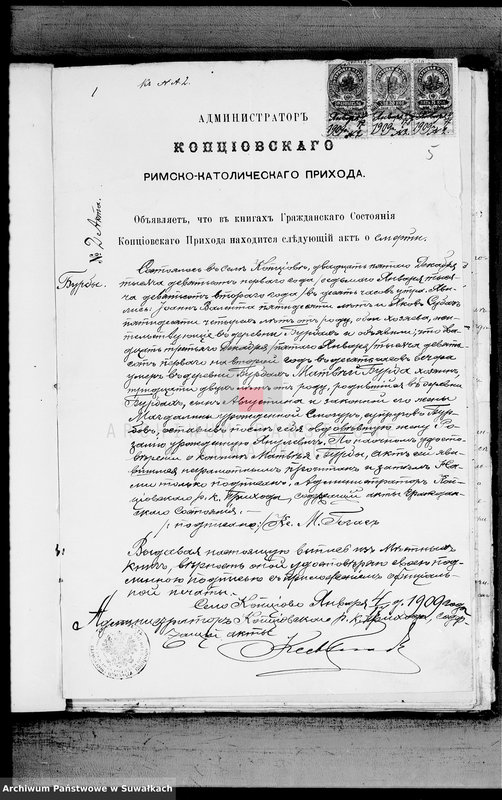 1
къ N A.2.
5
АДМИНИСТРАТОРЪ
КОПЦІОВСКАГО
РИМСКО-КАТОЛИЧЕСКАГО ПРИХОДА.
Объявляетъ, что въ книгахъ Гражданскаго Состоянія
Копціовскаго Прихода находится слѣдующій актъ о смерти.
№ 2 Акта.
Бурбы.
Состоялось въ Селѣ Копціовѣ, двадцать пятаго Декабря
тысяча девятисотъ перваго года /седьмого Января тыся-
ча девятисотъ второго года/ въ десять часовъ утра. Яви-
лись: Іоаннъ Валента пятидесяти лѣтъ и Яковъ
пятидесяти четырехъ лѣтъ отъ роду, оба хозяева, жи-
тельствующіе въ деревнѣ Бурбахъ и объявили, что два-
дцать третьяго Декабря /пятаго Января/ тысяча девять-
сотъ перваго на второй годъ въ десять часовъ вечера
умеръ въ деревнѣ Бурбахъ Матвѣй Бурба хозяинъ,
тридцати двухъ лѣтъ отъ роду, родившійся въ деревнѣ
Бурбахъ, сынъ Августина и законной его жены
Магдалины урожденной супруговъ Бур-
бовъ, оставивъ послѣ себя овдовѣвшую жену Ро-
залію урожденную По наочномъ удосто-
вѣреніи о кончинѣ Матвѣя Бурбы, актъ сей явив-
шимся неграмотнымъ прочитанъ и затѣмъ Нами
только подписанъ. Администраторъ Коп-
ціовскаго р. к. Прихода, содержащій акты Граждан-
скаго состоянія.
/подписано:/ Кс. М.
Выдавая настоящую выпись изъ мѣстныхъ
книгъ, вѣрность оной удостовѣряю своею под-
линною подписью съ приложеніемъ оффиціаль-
ной печати.
Село Копціово Января 1909 года
Администраторъ Копціовскаго р. к. Прихода, содер-
жащій акты
Archiwum Państwowe w Suwałkach